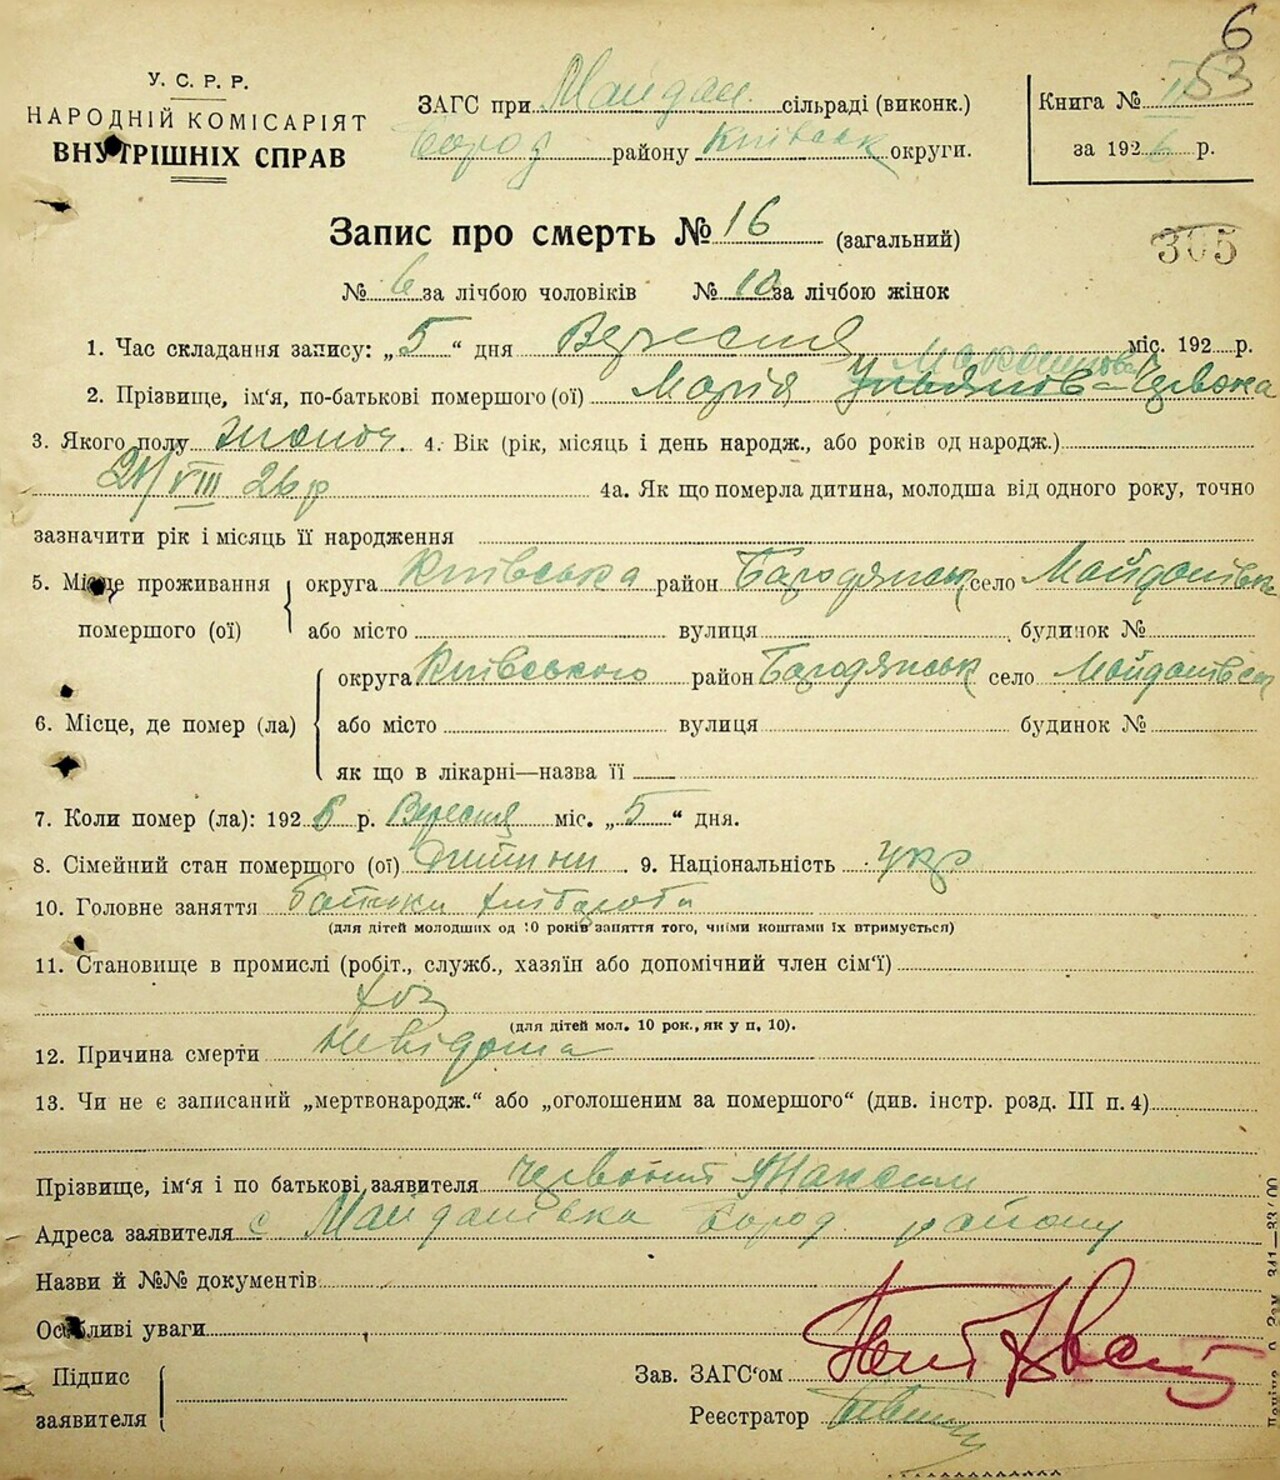 6
53
У. С. Р. Р.
НАРОДНІЙ КОМІСАРІЯТ
ВНУТРІШНІХ СПРАВ
ЗАГС при Майдан. сільраді (виконк.)
Бород району Київськ округи.
Книга № II
за 1926 р.
Запис про смерть № 16 (загальний)
305
№ 6 за лічбою чоловіків № 10 за лічбою жінок
1. Час складання запису: „5“ дня Вересня міс. 192 р.
2. Прізвище, ім‘я, по-батькові помершого (ої) Марія Ульянов Максимова Червона
3. Якого полу жіноч. 4. Вік (рік, місяць і день народж., або років од народж.)
21/VIII 26 р 4а. Як що померла дитина, молодша від одного року, точно
зазначити рік і місяць її народження
5. Місце проживання помершого (ої) округа Київська район Бородянськ село Майданівка
або місто вулиця будинок №
6. Місце, де помер (ла) округа Київського район Бородянськ село Майданівка
або місто вулиця будинок №
як що в лікарні—назва її
7. Коли помер (ла): 1926 р. Вересня міс. „5“ дня.
8. Сімейний стан помершого (ої) 9. Національність укр
10. Головне заняття Батьки хлібороби
(для дітей молодших од 10 років заняття того, чиїми коштами їх втримується)
11. Становище в промислі (робіт., служб., хазяїн або допомічний член сім‘ї)
хоз
(для дітей мол. 10 рок., як у п. 10).
12. Причина смерти невідома
13. Чи не є записаний „мертвонародж.“ або „оголошеним за помершого“ (див. інстр. розд. III п. 4)
Прізвище, ім‘я і по батькові заявителя Червоний Максим
Адреса заявителя с Майданівка Бород. району
Назви й №№ документів
Особливі уваги
Підпис
заявителя
Зав. ЗАГС‘ом
Реєстратор